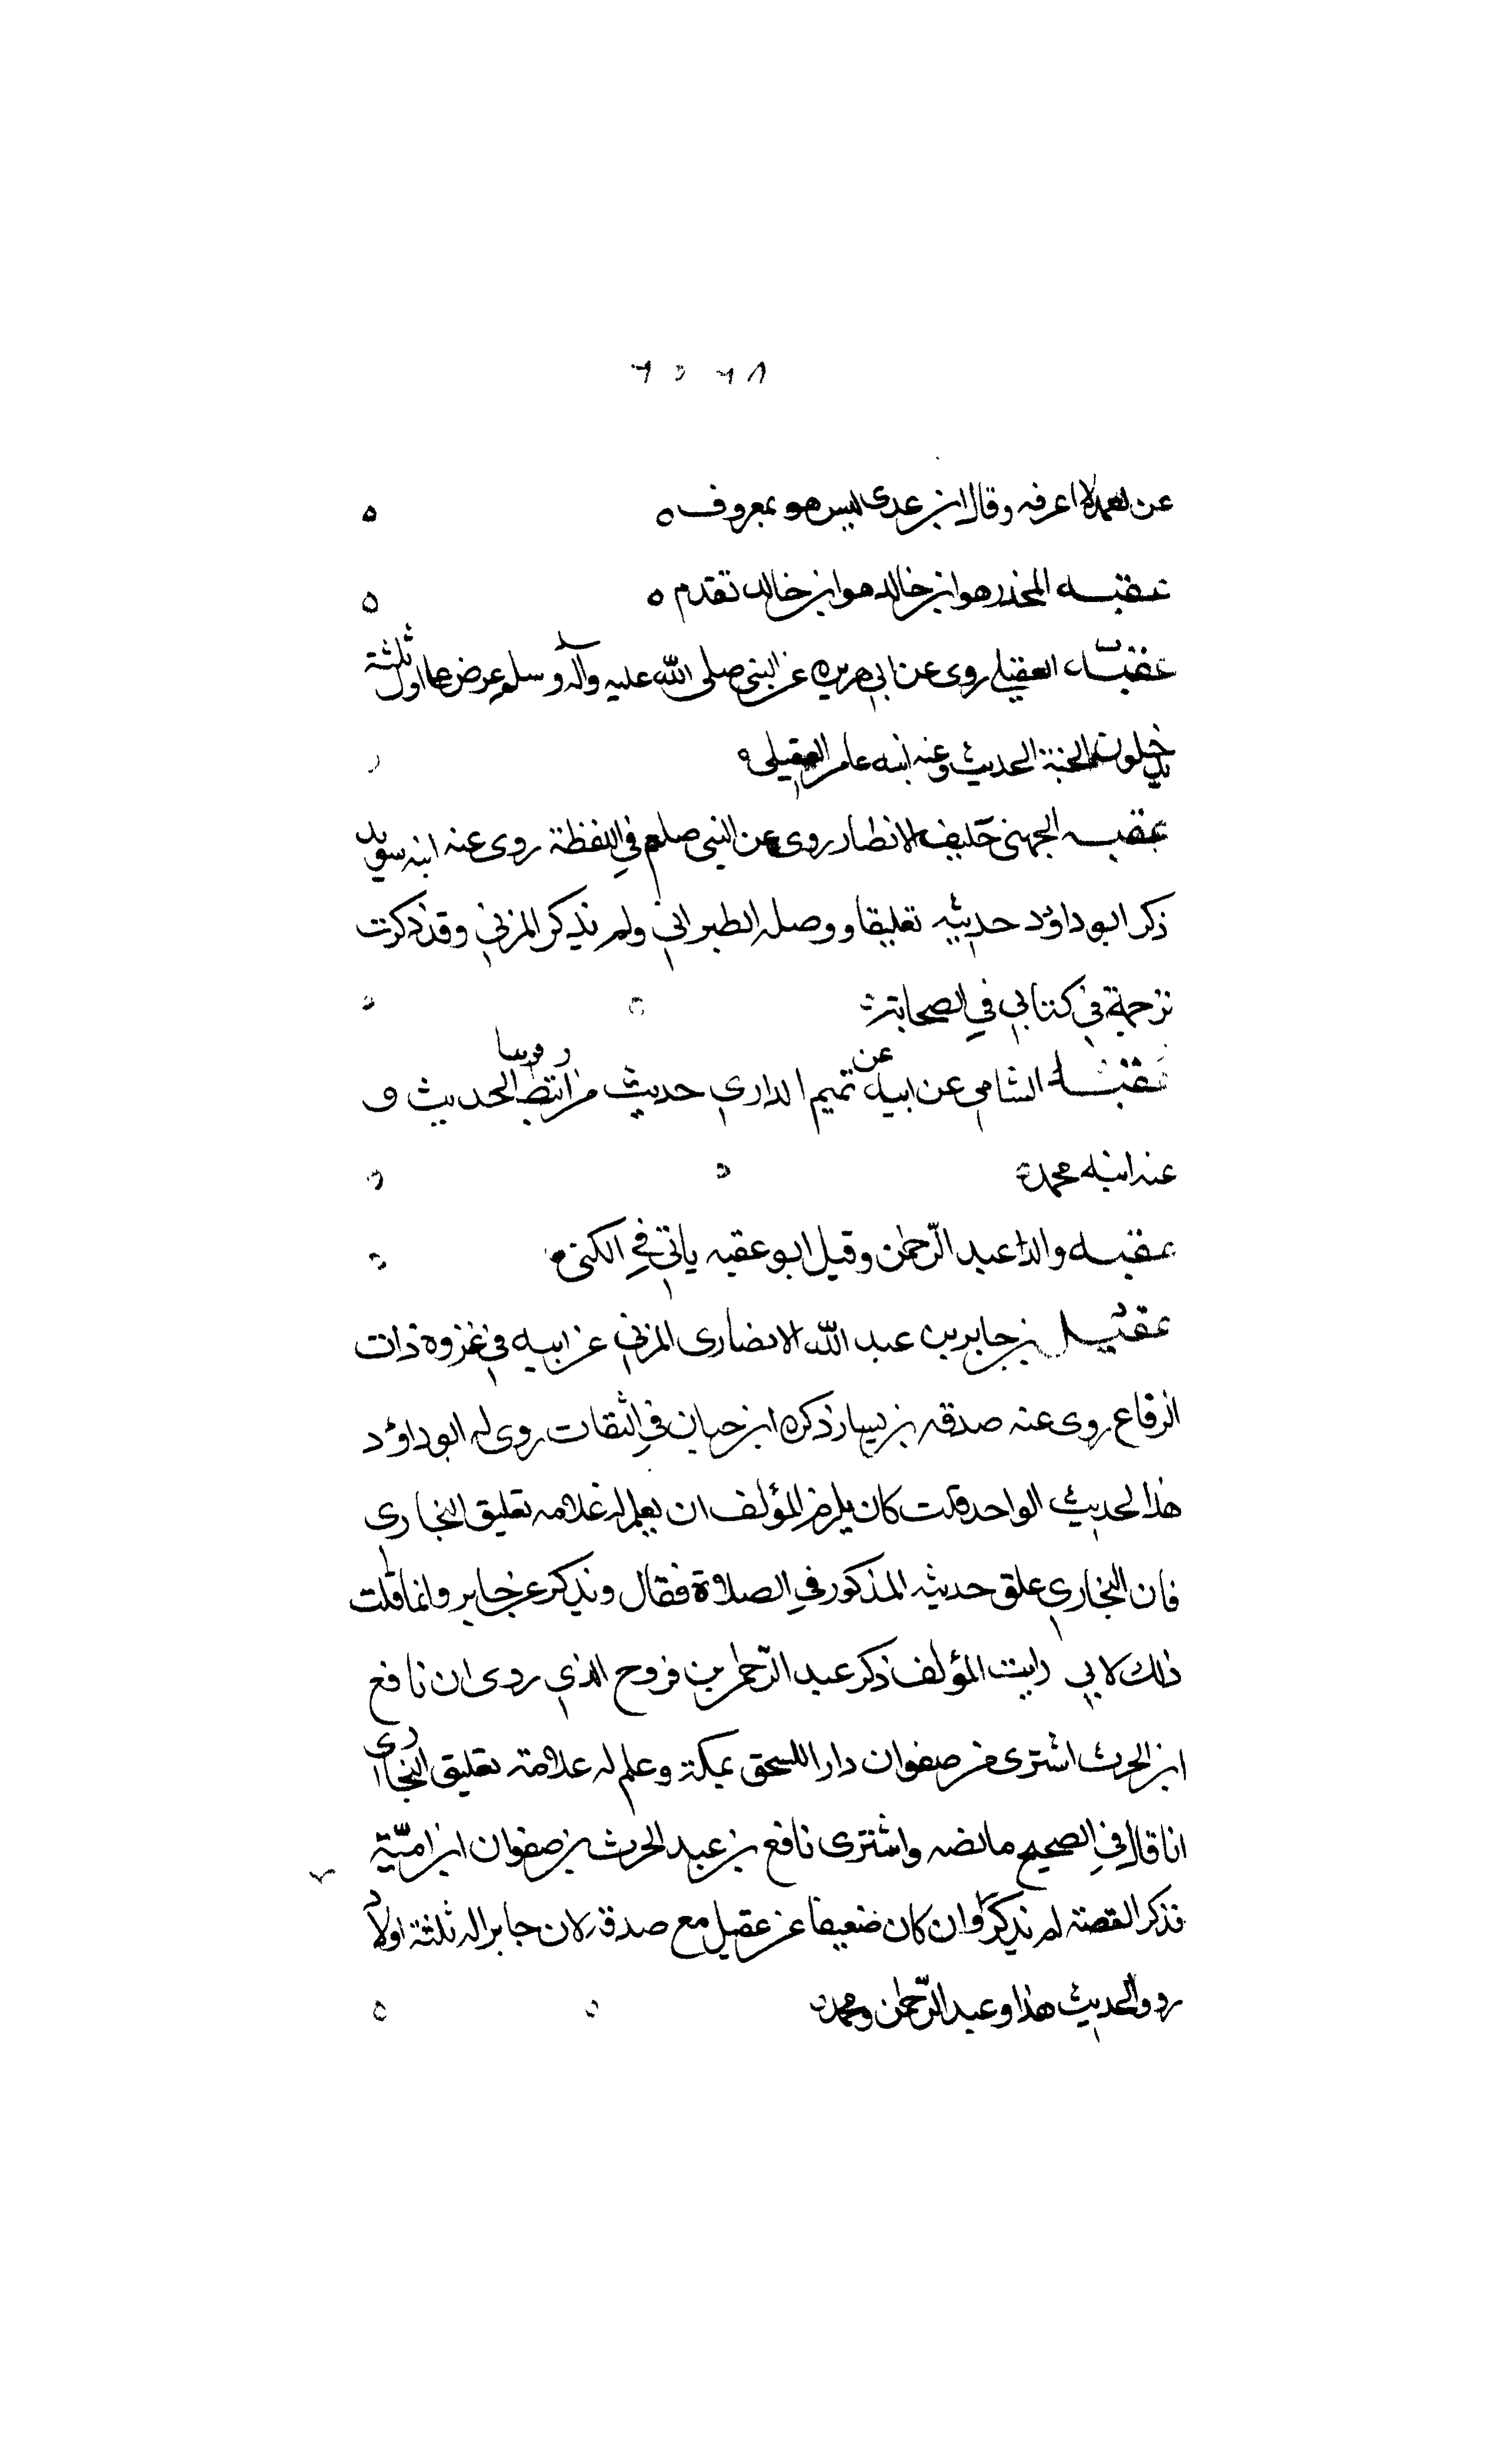 عن احمد لا اعرفه وقال ابن عدى ليس هو بمعروف ه ه
عقبه المخدر هو ابن خالد هو ابن خالد تقدم ه ه
عقبة العقيلي روى عن ابي هريره عن النبي صلى الله عليه وآله وسلم عرض على اول ثلثة
يدخلون الجنة الحديث وعنه ابنه عامر العقيلي ه
عقبه الجهني حليف الانصار روى عن النبي صلعم في اللفظة روى عنه ابنه سويد
ذكر ابو داؤد حديثه تعليقا ووصله الطبراني ولم يذكر المزني وقد ذكرت
ترجمة في كتابي في الصحابة
عقبة الشامي عن ابيه عن تميم الداري حديث من ارتبط فرسا الحديث و
عنه ابنه محمد ه
عقبه والد عبد الرّحمٰن وقيل ابو عقبه ياتي في الكنى
عقيل بن جابر بن عبد الله الانصارى المزني عن ابيه في غزوة ذات
الرقاع روى عنه صدقه بن يسار ذكره ابن حبان في الثقات روى له ابو داؤد
هذا الحديث الواحد قلت كان يلزم المؤلف ان يعلم له علامه تعليق البخاري
فان البخاري علق حديثه المذكور في الصلاة فقال ويذكر عن جابر وانما قلت
ذلك لاني رايت المؤلف ذكر عبد الرّحمٰن بن فروح الذي روى ان نافع
ابن الحرث اشترى من صفوان دارا للسحق بمكة وعلم له علامة تعليق البخارى
انا قال في الصحيح مانصه واشترى نافع بن عبد الحرث بن صفوان ابن اميّة
فذكر القصة لم يذكر وان كان ضعيفا عن عقيل مع صدقه لان جابرا له ثلثة اولاد
رووا الحديث هذا وعبد الرّحمٰن ومحمد